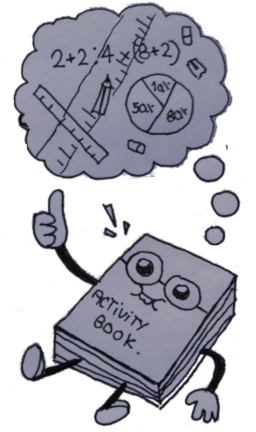 2+2:4+(8+2)
10%
50%
80%
ACTIVITY
BOOK.